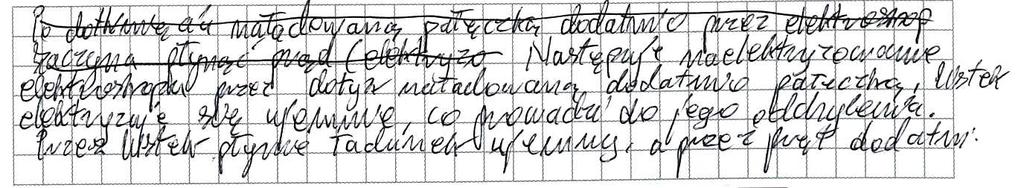 Po dotknięciu naładowaną pałęczką dodatnio przez elektroskop
zaczyna płynąć prąd (elektryzo Następuje naelektryzowanie
elektroskopu przez dotyk naładowaną dodatnio pałeczką, listek
elektryzuje się ujemnie, co prowadzi do jego odchylenia.
Przez listek płynie ładunek ujemny, a przez pręt dodatni.